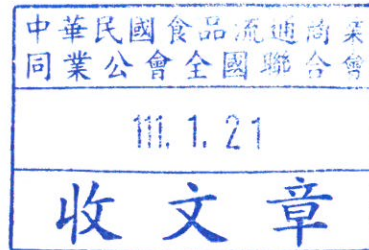 中華民國食品流通商業
同業公會全國聯合會
111. 1. 21
收文章